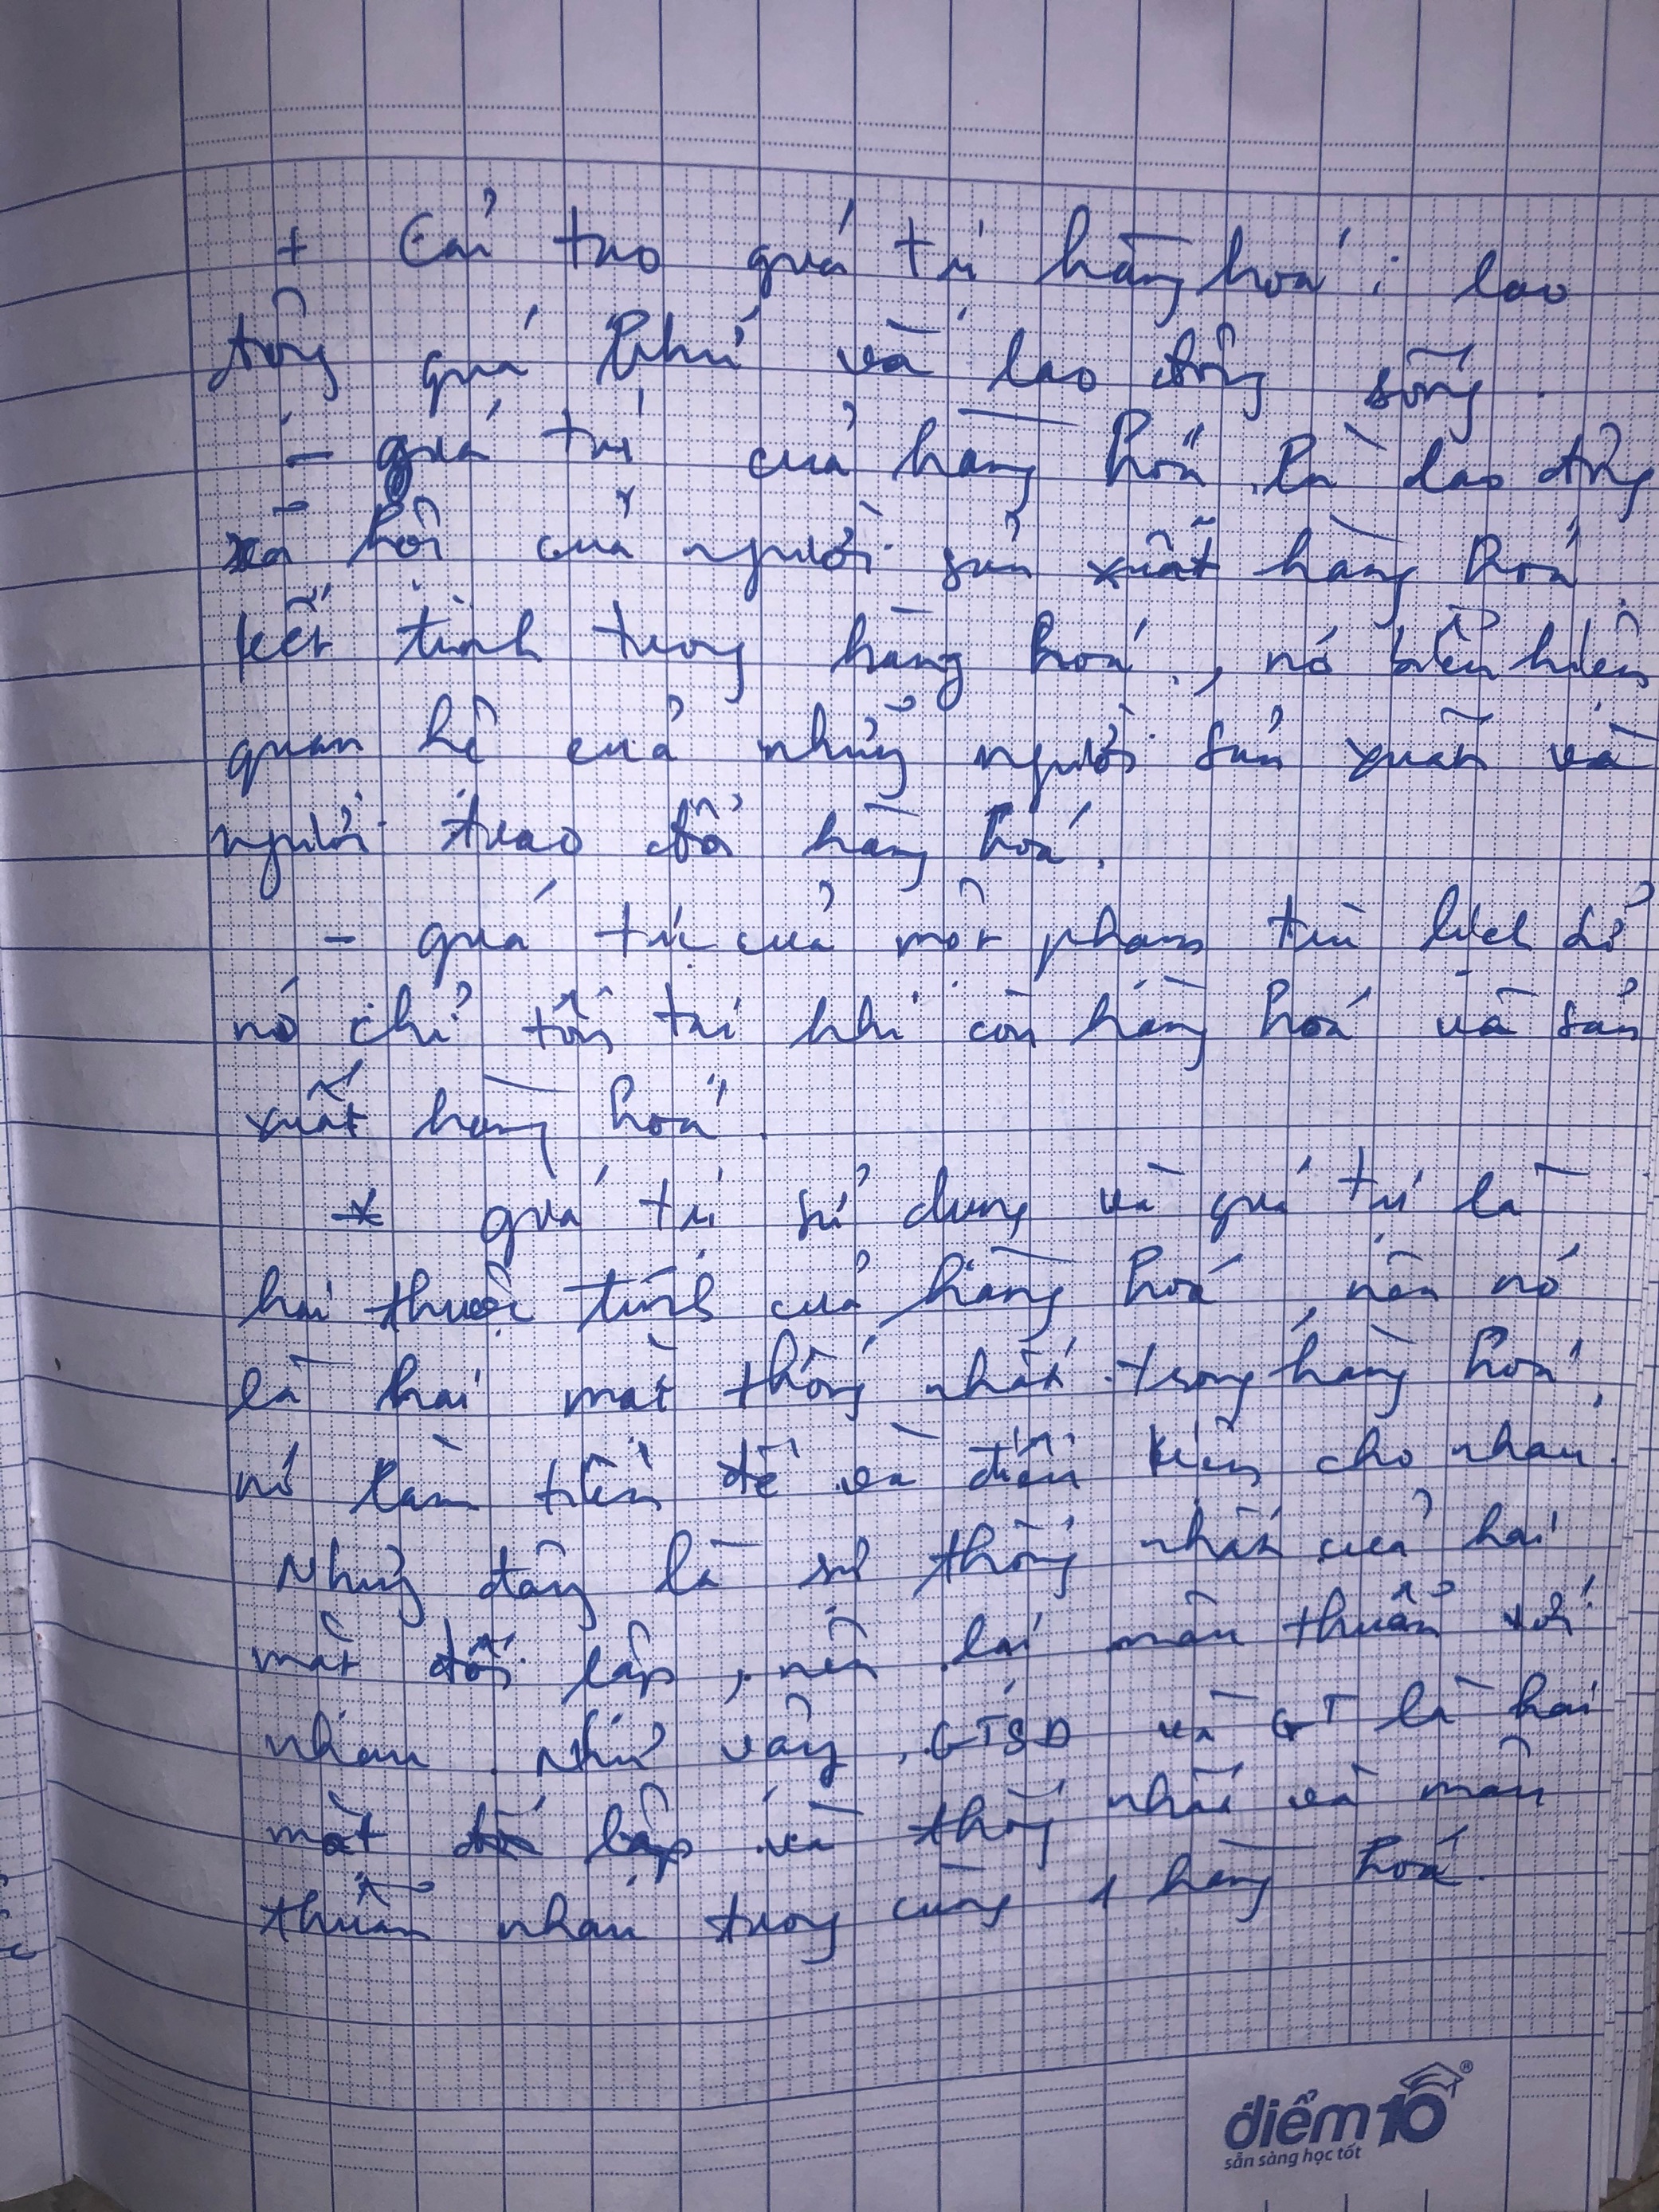 + Cấu tạo giá trị hàng hoá : lao
động quá khứ và lao động sống.
- giá trị của hàng hoá là lao động
xã hội của người sản xuất hàng hoá
kết tinh trong hàng hoá, nó biểu hiện
quan hệ của những người sản xuất và
người trao đổi hàng hoá.
- giá trị của một phạm trù lịch sử
nó chỉ tồn tại khi còn hàng hoá và sản
xuất hàng hoá.
* giá trị sử dụng và giá trị là
hai thuộc tính của hàng hoá, nên nó
là hai mặt thống nhất trong hàng hoá,
nó làm tiền đề và điều kiện cho nhau.
Nhưng đây là sự thống nhất của hai
mặt đối lập, nên lại mâu thuẫn với
nhau. Như vậy, GTSD và GT là hai
mặt đối lập và thống nhất và mâu
thuẫn nhau trong cùng 1 hàng hoá.
điểm10
sẵn sàng học tốt